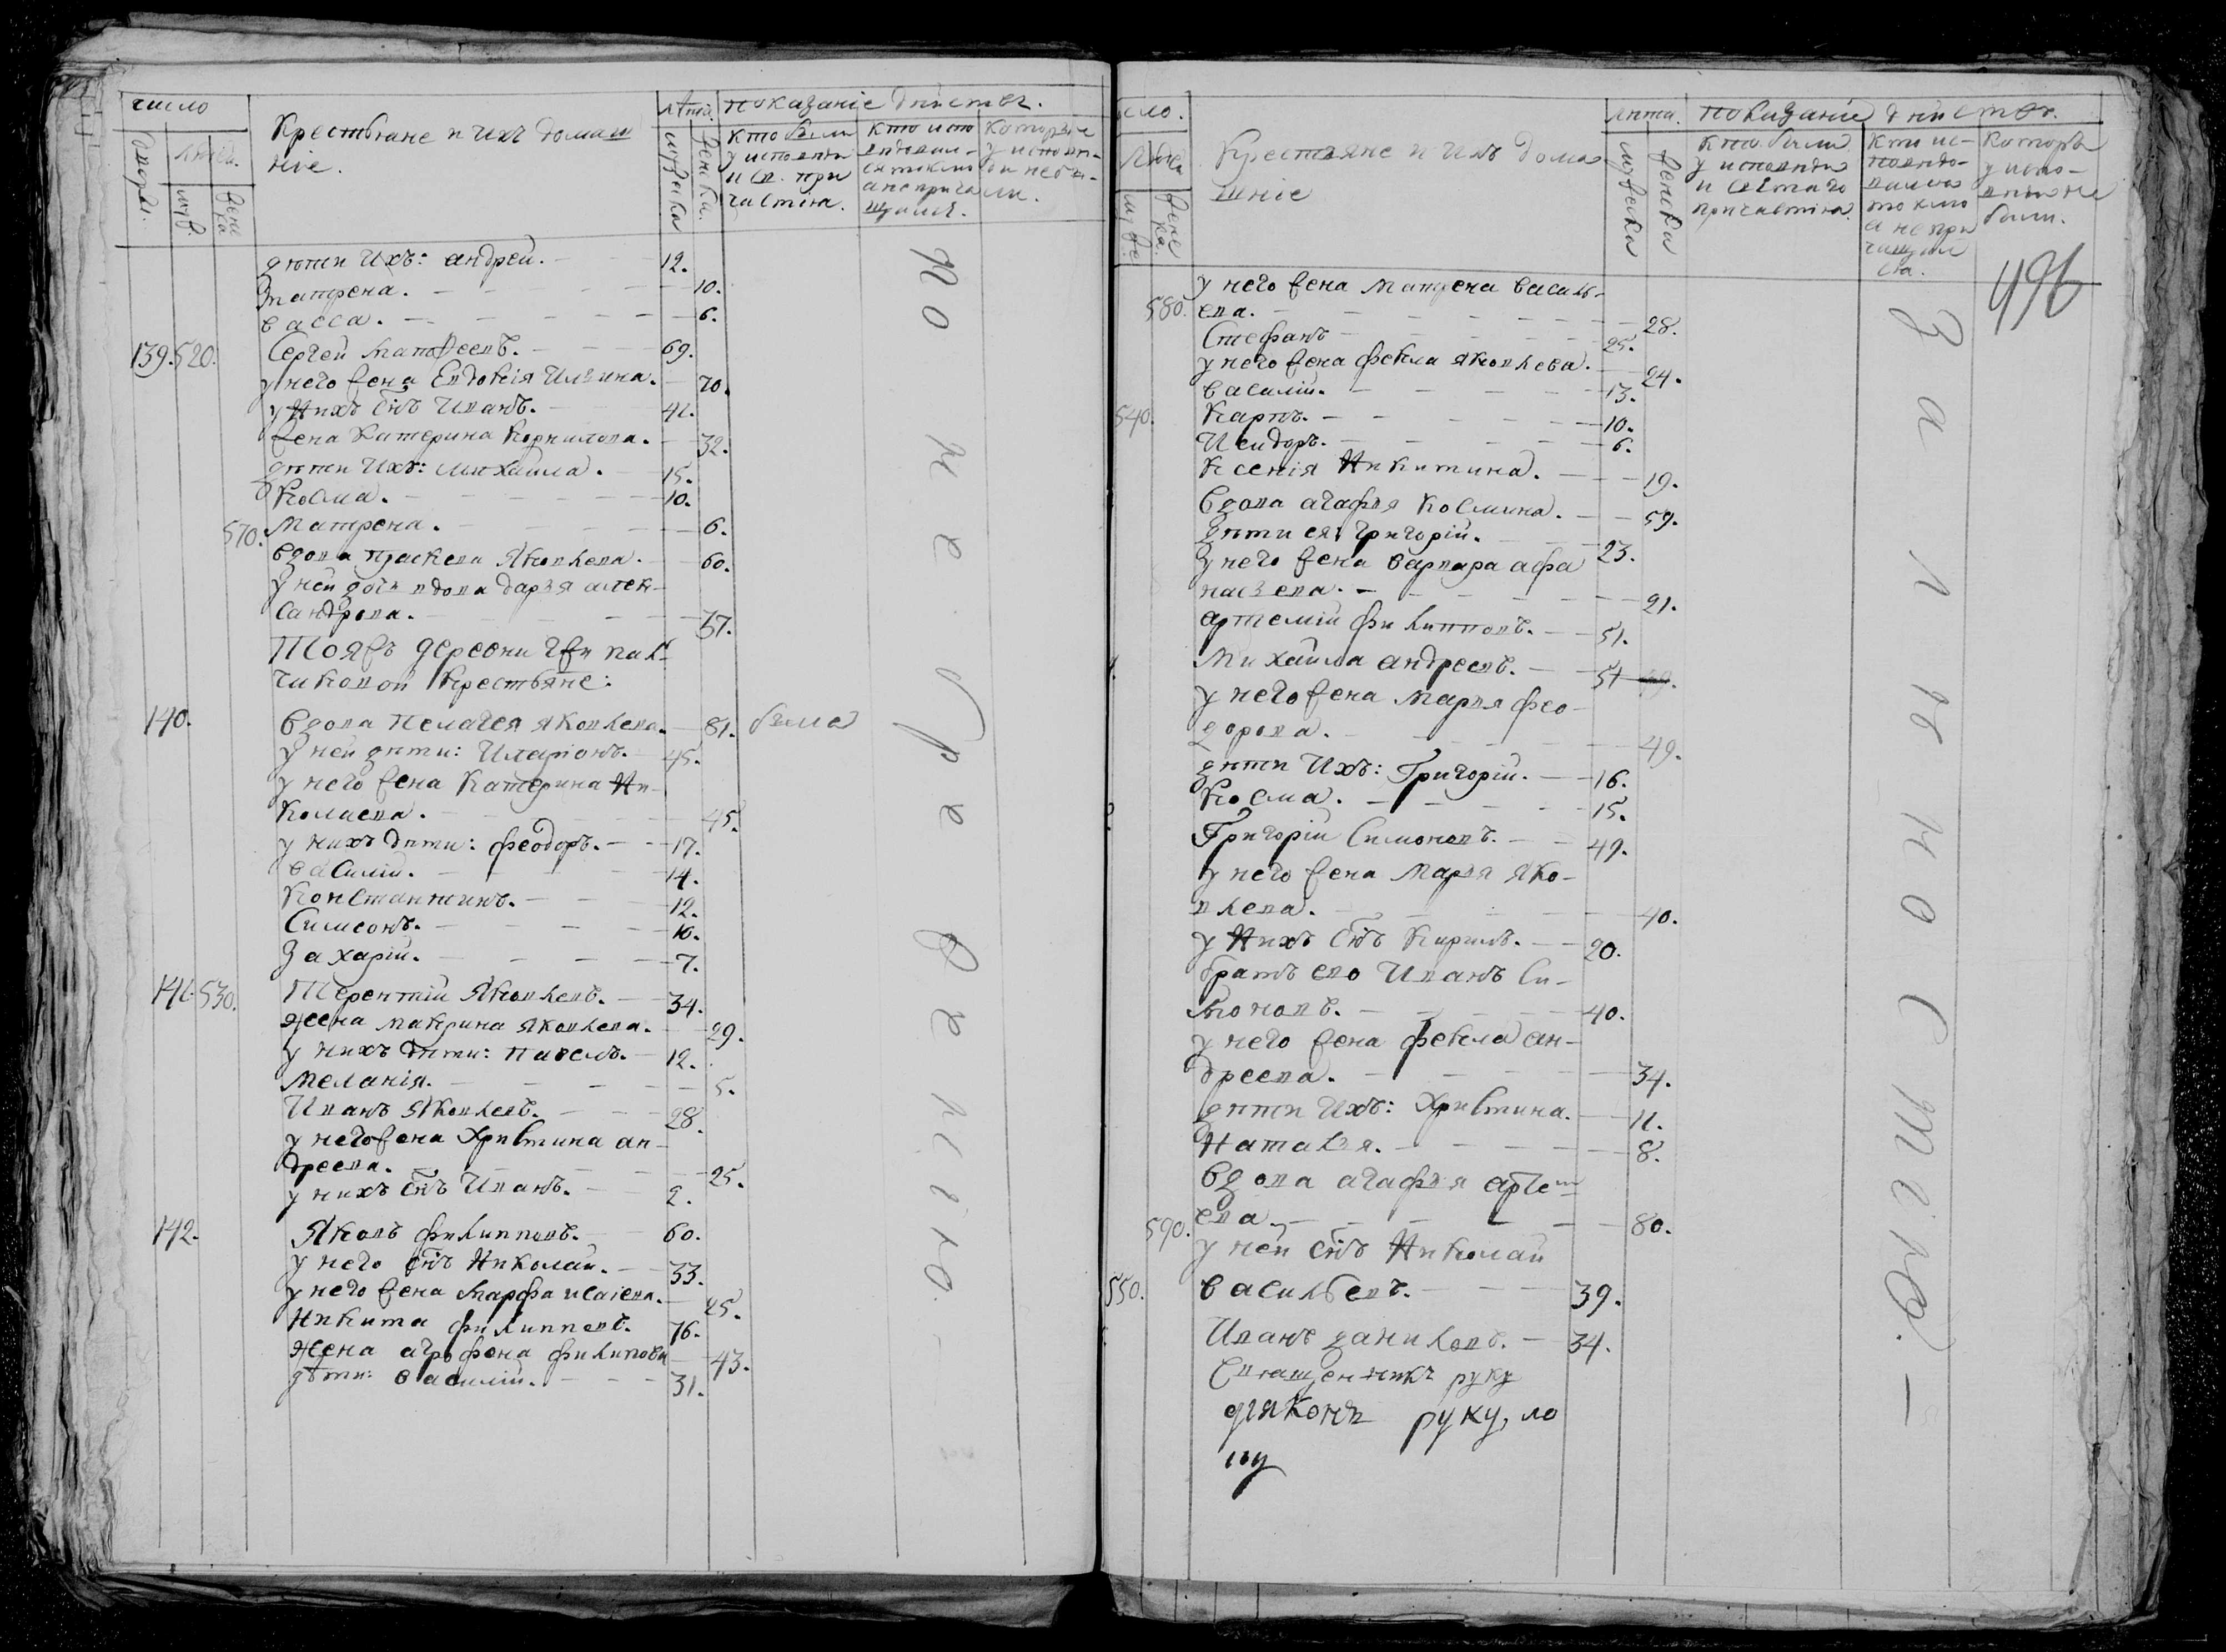 число
Крестьяне и ихъ домаш
ніе.
лѣта.
показаніе дѣйствъ.
дворы.
людей.
муз.
женска
музеска
женска.
кто были
у исповѣди
и св. при
частія.
кто испо
вѣдовал-
ся токмо
а не прича
щался.
которые
у исповѣ-
ди не бы-
ли.
дѣти ихъ: андрей. 12.
матрена. 10.
васса. 6.
139. 520. Сергей матвеевъ. 69.
у него жена Евдокія Ильина. 70.
у нихъ снъ Иванъ. 42.
жена Катерина Корнилова. 32.
дѣти ихъ: михайла. 15.
Косма. 10.
570. матрена. 6.
вдова праскева Яковлева. 60.
у ней дочь вдова дарья алек-
сандрова. 37.
Тояжъ деревни гжи пал-
чиковой крестьяне:
140. вдова пелагея яковлева. 81. была
у ней дѣти: Иларіонъ. 45.
у него жена Катерина Ни-
колаева. 45.
у нихъ дѣти: феодоръ. 17.
василій. 14.
Константинъ. 12.
Симеонъ. 10.
Захарій. 7.
141. 530. Терентій Яковлевъ. 34.
жена макрина яковлева. 29.
у нихъ дѣти: павелъ. 12.
меланія. 5.
Иванъ Яковлевъ. 28.
у него жена Христина ан-
дреева. 25.
у нихъ снъ Иванъ. 2.
142. Яковъ филипповъ. 60.
у него снъ Николай. 33.
у него жена Марфа исаіева. 25.
Никита филипповъ. 76.
жена агрофена филипова 43.
дѣти: василій. 31.
по не бре же нію.
сло.
людей
музе.
жене
ка.
Крестьяне и ихъ дома
шніе
лѣта.
показаніе дѣйствъ.
музеска
женска
кто были
у исповѣди
и святаго
причастія.
кто ис-
повѣдо-
вался
токмо
а не при
чащал
ся.
которые
у испо-
вѣди не
были.
496
у него жена матрена василь-
580. ева. 28.
Стефанъ 25.
у него жена фекла яковлева. 24.
василій. 13.
540. Карпъ. 10.
Исидоръ. 6.
Ксенія Никитина. 19.
вдова агафья Космина. 59.
дѣти ея: григорій. 23.
у него жена варвара афа
насьева. 21.
артемій филипповъ. 51.
михайла андреевъ. 51
у него жена марья фео-
дорова. 49.
дѣти ихъ: Григорій. 16.
Косма. 15.
Григорій Симоновъ. 49.
у него жена марья яко-
влева. 40.
у нихъ снъ Кирилъ. 20.
братъ ево Иванъ Си-
моновъ. 40.
у него жена фекла ан-
дреева. 34.
дѣти ихъ: Христина. 11.
Наталья. 8.
вдова агафья арте
590. ева. 80.
у ней снъ Николай
550. васильевъ. 39.
Иванъ даниловъ. 34.
Священникъ руку
діяконъ руку, ло
жу
за лѣ ностію.